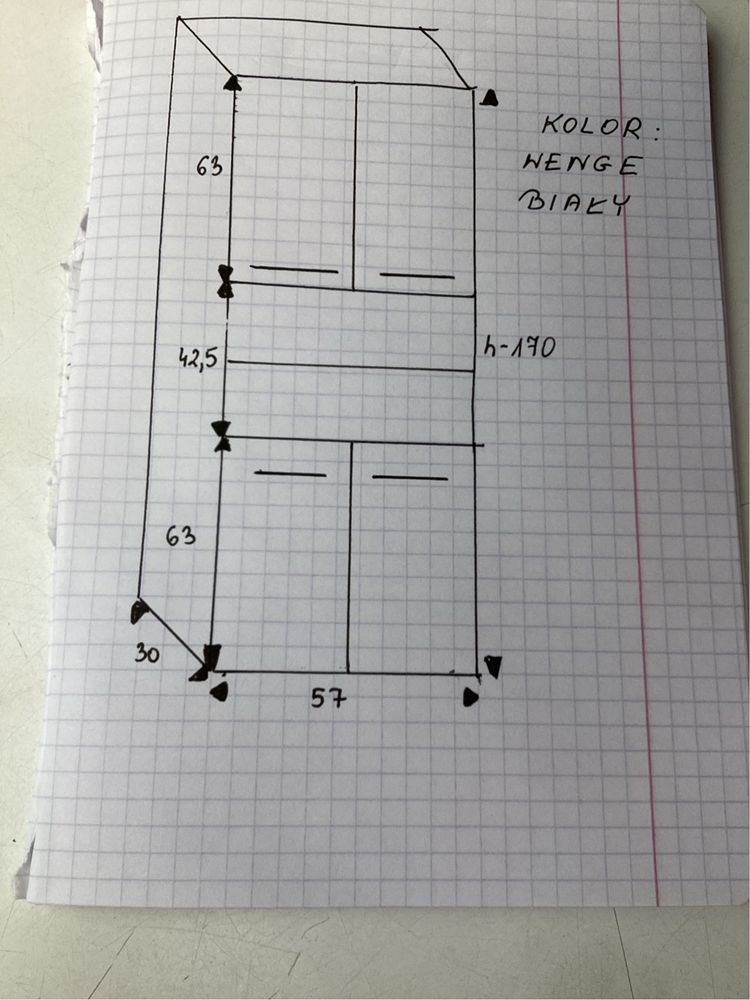 63
KOLOR:
WENGE
BIAŁY
42,5
h-170
63
30
57